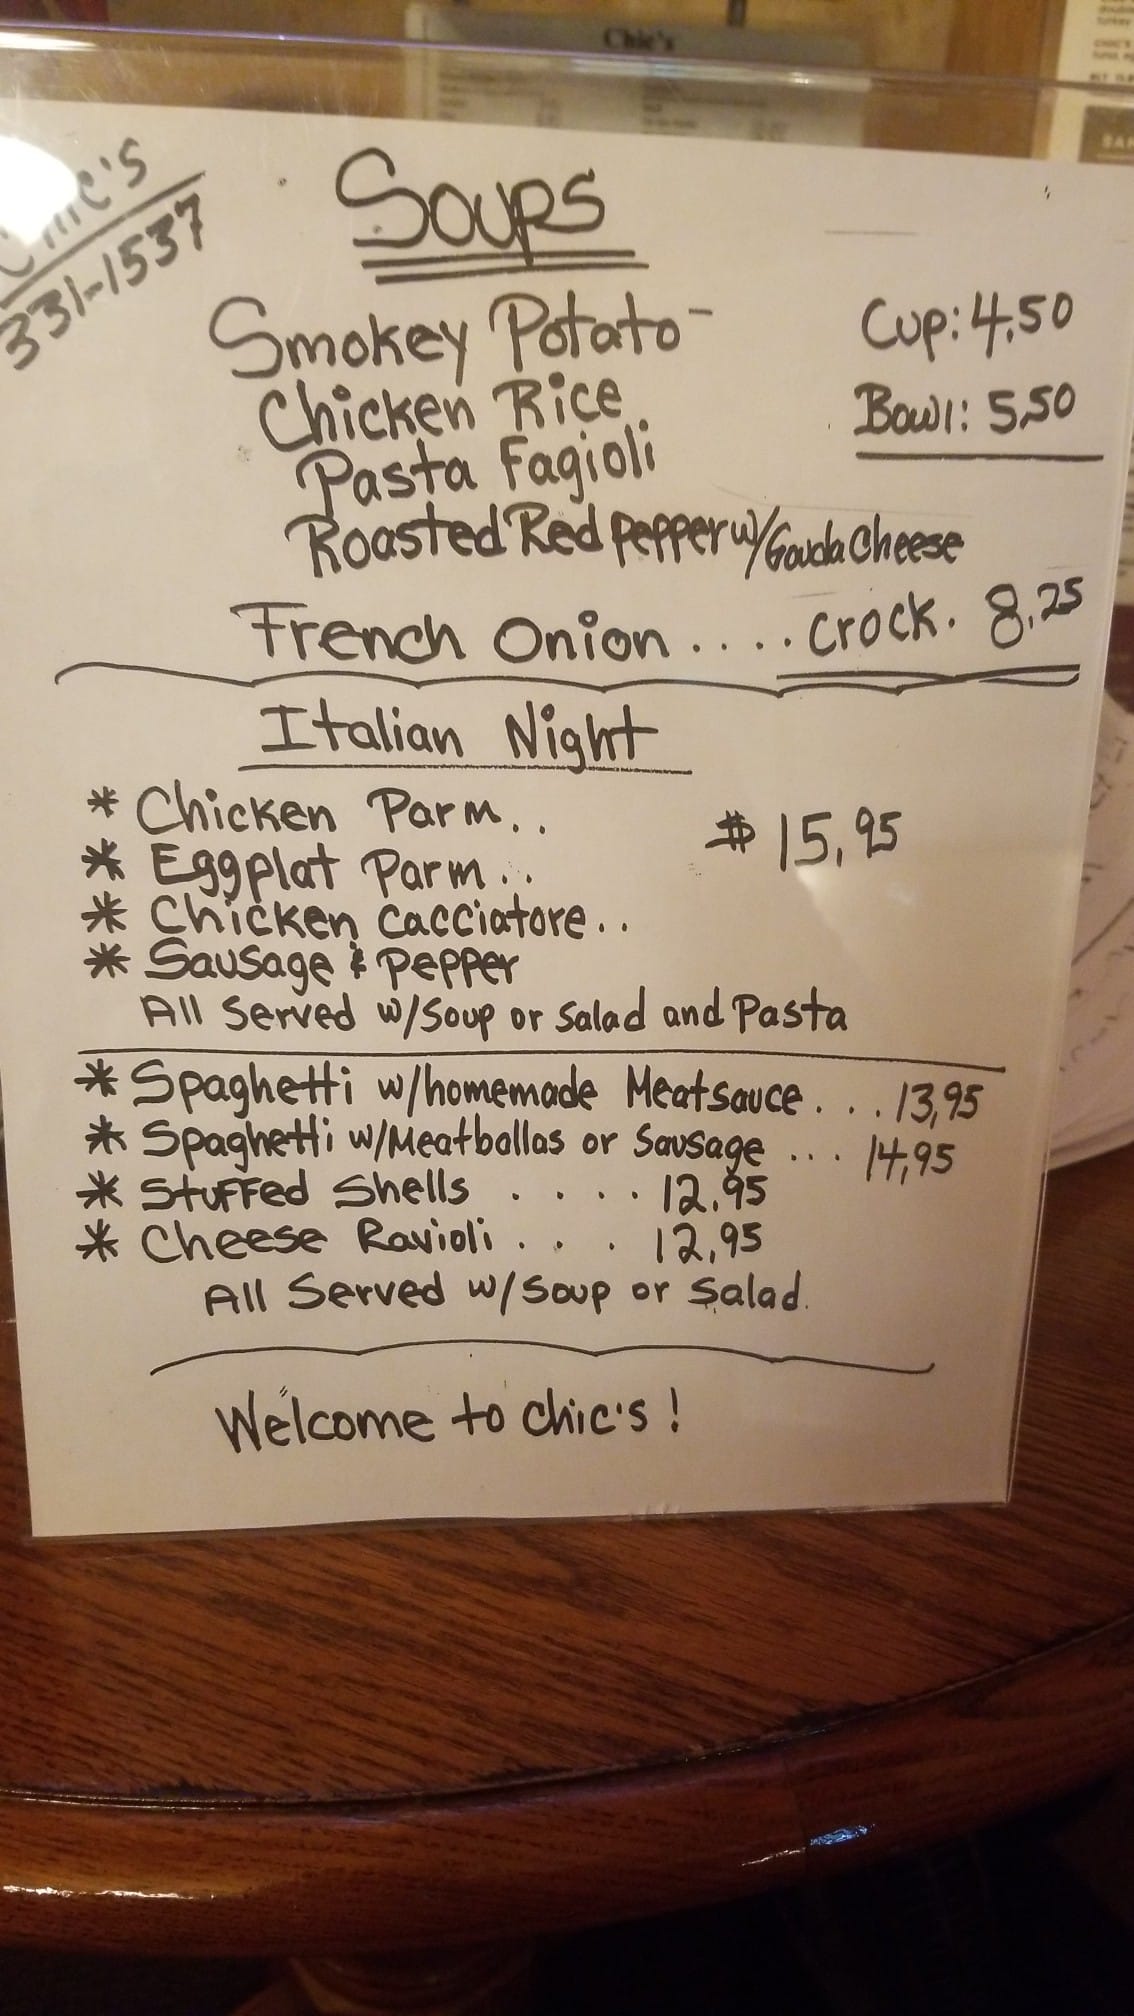 Chic's
Chic's
331-1537
Soups
Smokey Potato- Cup: 4.50
Chicken Rice Bowl: 5.50
Pasta Fagioli
Roasted Red Pepper w/Gouda Cheese
French Onion..... Crock. 8.25
Italian Night
* Chicken Parm.. $15.95
* Eggplat Parm...
* Chicken Cacciatore..
* Sausage & Pepper
All Served w/Soup or Salad and Pasta
* Spaghetti w/homemade Meatsauce. ... 13,95
* Spaghetti w/Meatballas or Sausage ... 14,95
* Stuffed Shells ..... 12.95
* Cheese Ravioli . . . 12,95
All Served w/Soup or Salad.
Welcome to Chic's!